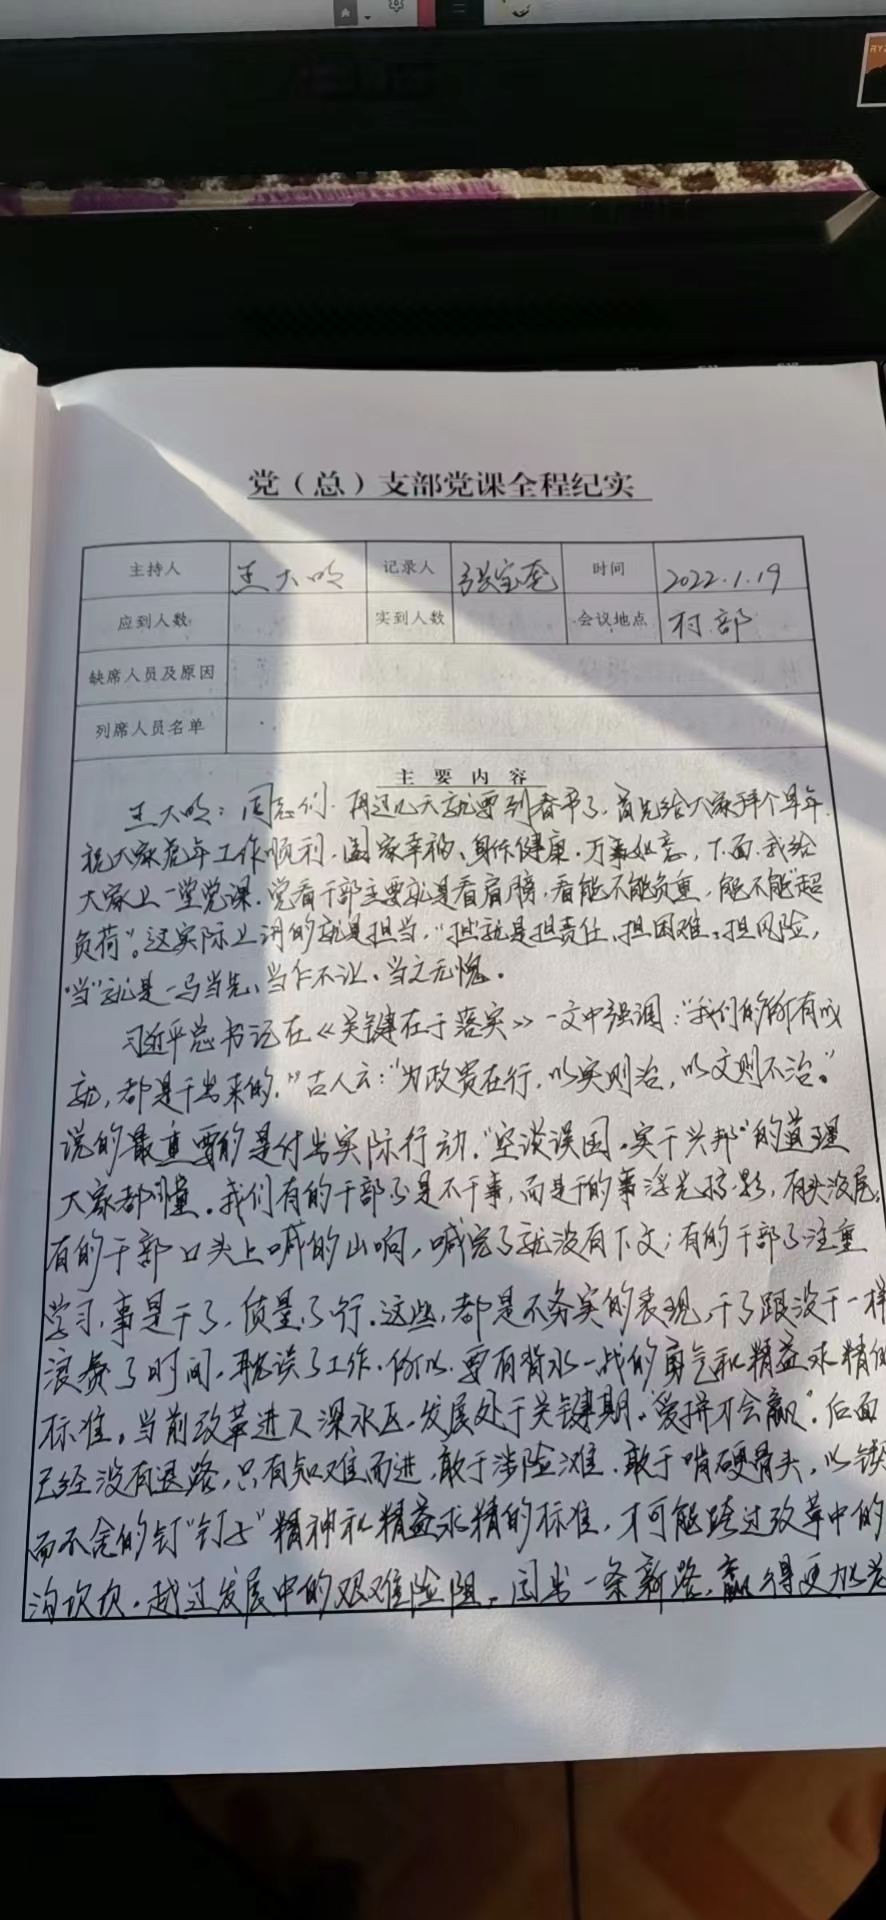 党（总）支部党课全程纪实
主持人 王大鸣 记录人 张宝奎 时间 2022.1.19
应到人数 实到人数 会议地点 村部
缺席人员及原因
列席人员名单
主要内容
王大鸣：同志们．再过几天就要到春节了，首先给大家拜个早年．
祝大家虎年工作顺利，阖家幸福、身体健康．万事如意，下面，我给
大家上一堂党课．党看干部主要就是看肩膀，看能不能负重，能不能"超
负荷"。这实际上讲的就是担当，"担"就是担责任、担困难、担风险，
"当"就是一马当先、当仁不让、当之无愧。
习近平总书记在《关键在于落实》一文中强调："我们的所有成
就，都是干出来的，"古人云："为政贵在行，以实则治，以文则不治。"
说的最重要的是付出实际行动．"空谈误国，实干兴邦"的道理
大家都懂．我们有的干部不是不干事，而是干的事浮光掠影，有头没尾，
有的干部口头上喊的山响，喊完了就没有下文；有的干部不注重
学习，事是干了，质量不行．这些，都是不务实的表现，干了跟没干一样
浪费了时间，耽误了工作．所以．要有背水一战的勇气和精益求精的
标准。当前改革进入深水区，发展处于关键期。"爱拼才会赢"．后面
已经没有退路，只有知难而进，敢于涉险滩．敢于啃硬骨头，以锲
而不舍的钉"钉子"精神和精益求精的标准，才可能跨过改革中的
沟坎坎．越过发展中的艰难险阻。闯出一条新路，赢得更加光